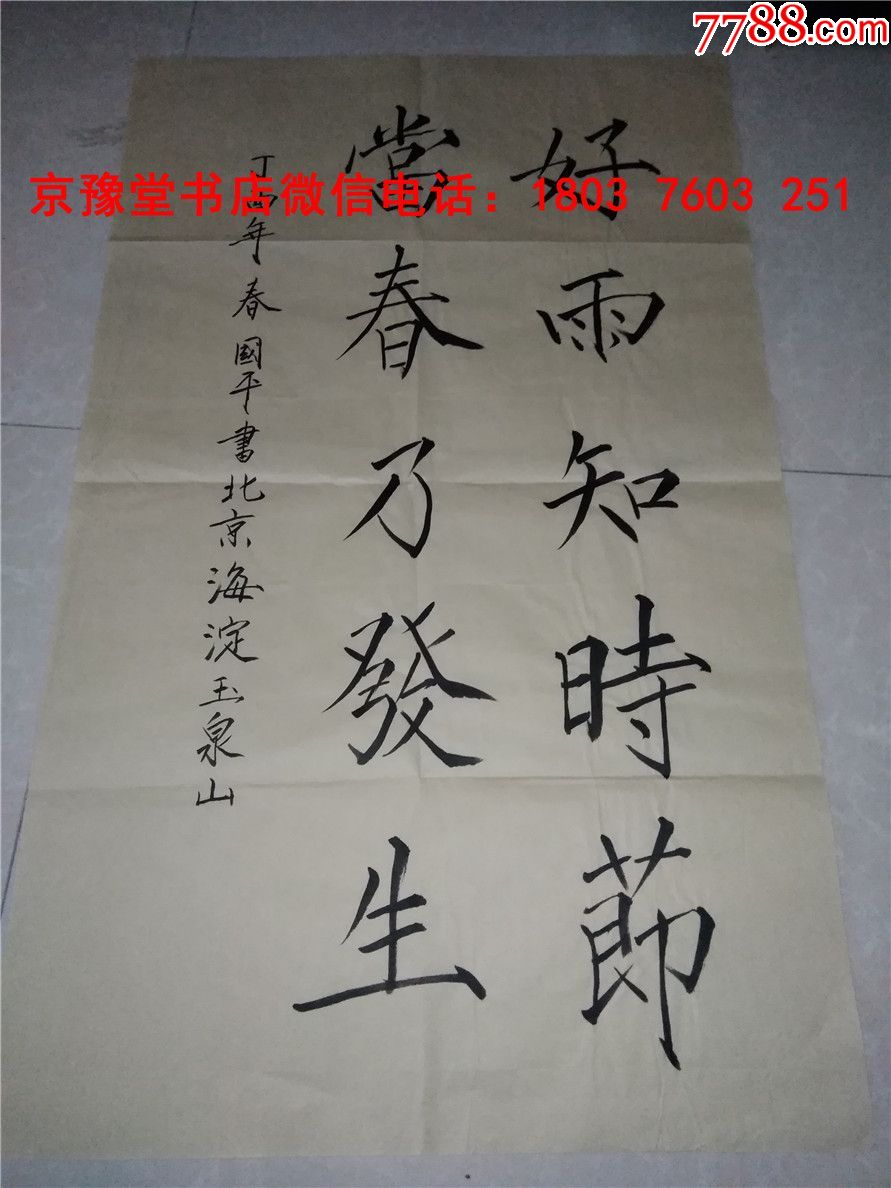 7788.com
好雨知時節
當春乃發生
丁酉年春國平書北京海淀玉泉山
京豫堂书店微信电话：1803 7603 251